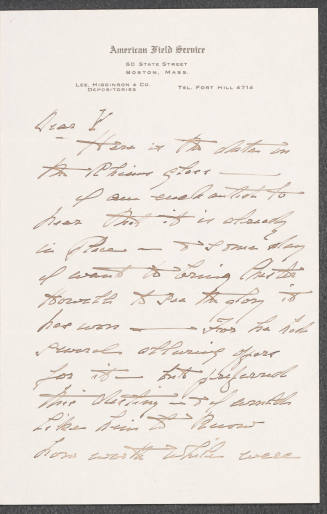 American Field Service
50 STATE STREET
BOSTON, MASS.
LEE, HIGGINSON & CO. TEL. FORT HILL 4714
DEPOSITORIES
Dear Y
Here is the data on
the Rheims glass —
I am enchanted to
hear that it is already
in place — & some day
I want to bring
Howells to see the glory it
has won — For he had
several alluring offers
for it — but preferred
this destiny & I would
like him to know
how worth while were